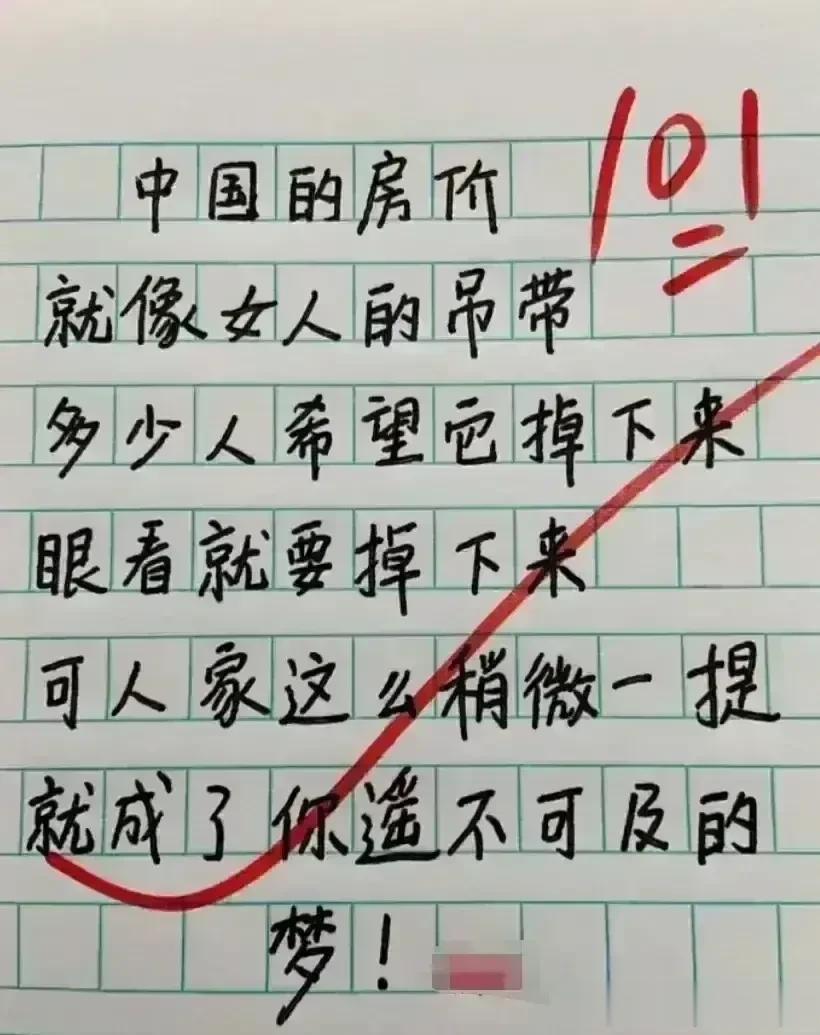 中国的房价
101
就像女人的吊带
多少人希望它掉下来
眼看就要掉下来
可人家这么稍微一提
就成了你遥不可及的
梦！